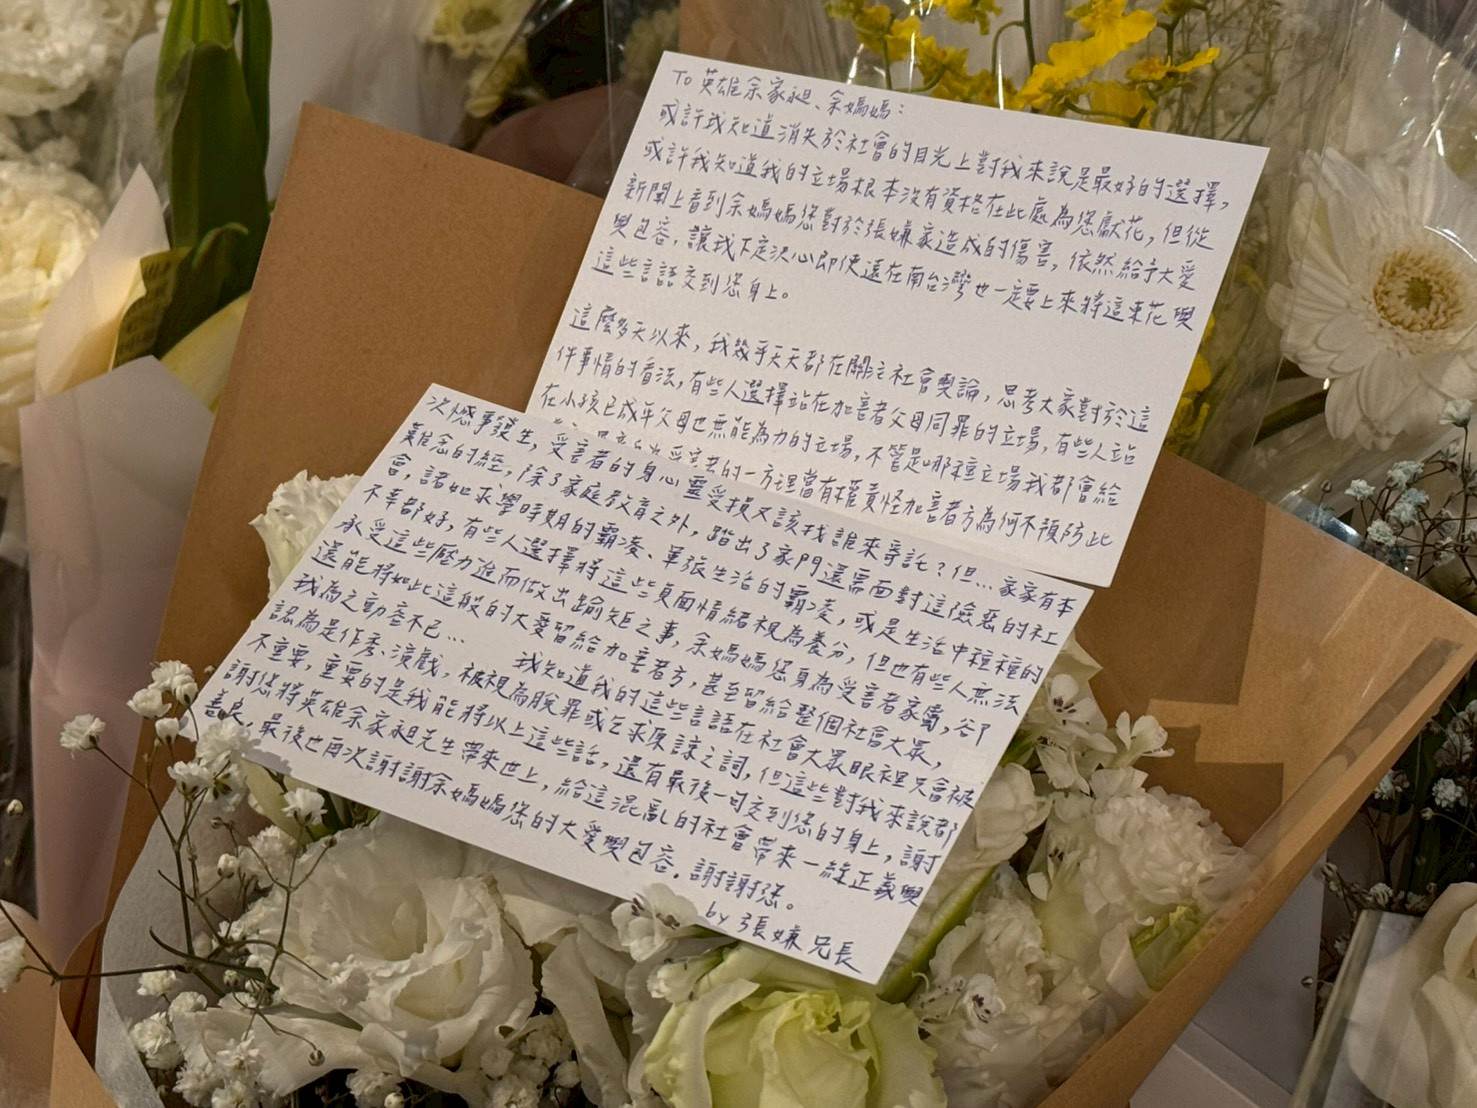 To 英雄余家昶、余媽媽：
或許我知道消失於社會的目光上對我來說是最好的選擇，
或許我知道我的立場根本沒有資格在此處為您獻花，但從
新聞上看到余媽媽您對於張嫌家造成的傷害，依然給予大愛
與包容，讓我下定決心即使遠在南台灣也一定要上來將這束花與
這些言語交到您身上。
這麼多天以來，我幾乎天天都在關注社會輿論，思考大家對於這
件事情的看法，有些人選擇站在加害者父母同罪的立場，有些人站
在小孩已成年父母也無能為力的立場，不管是哪種立場我都會給
受害者的一方理當有權責怪加害者方為何不預防此
次憾事發生，受害者的身心靈受損又該找誰來寄託？但…家家有本
難念的經，除了家庭教育之外，踏出了家門還需面對這險惡的社
會，諸如求學時期的霸凌、單張生活的霸凌，或是生活中種種的
不幸都好，有些人選擇將這些負面情緒視為養分，但也有些人無法
承受這些壓力進而做出踰矩之事，余媽媽您身為受害者家屬，卻
還能將如此這般的大愛留給加害者方，甚至留給整個社會大眾，
我為之動容不已… 我知道我的這些言語在社會大眾眼裡只會被
認為是作秀、演戲，被視為脫罪或乞求原諒之詞，但這些對我來說都
不重要，重要的是我能將以上這些話，還有最後一句交到您的身上，謝
謝您將英雄余家昶先生帶來世上，給這混亂的社會帶來一線正義與
善良，最後也再次謝謝余媽媽您的大愛與包容，謝謝您。
by 張嫌 兄長